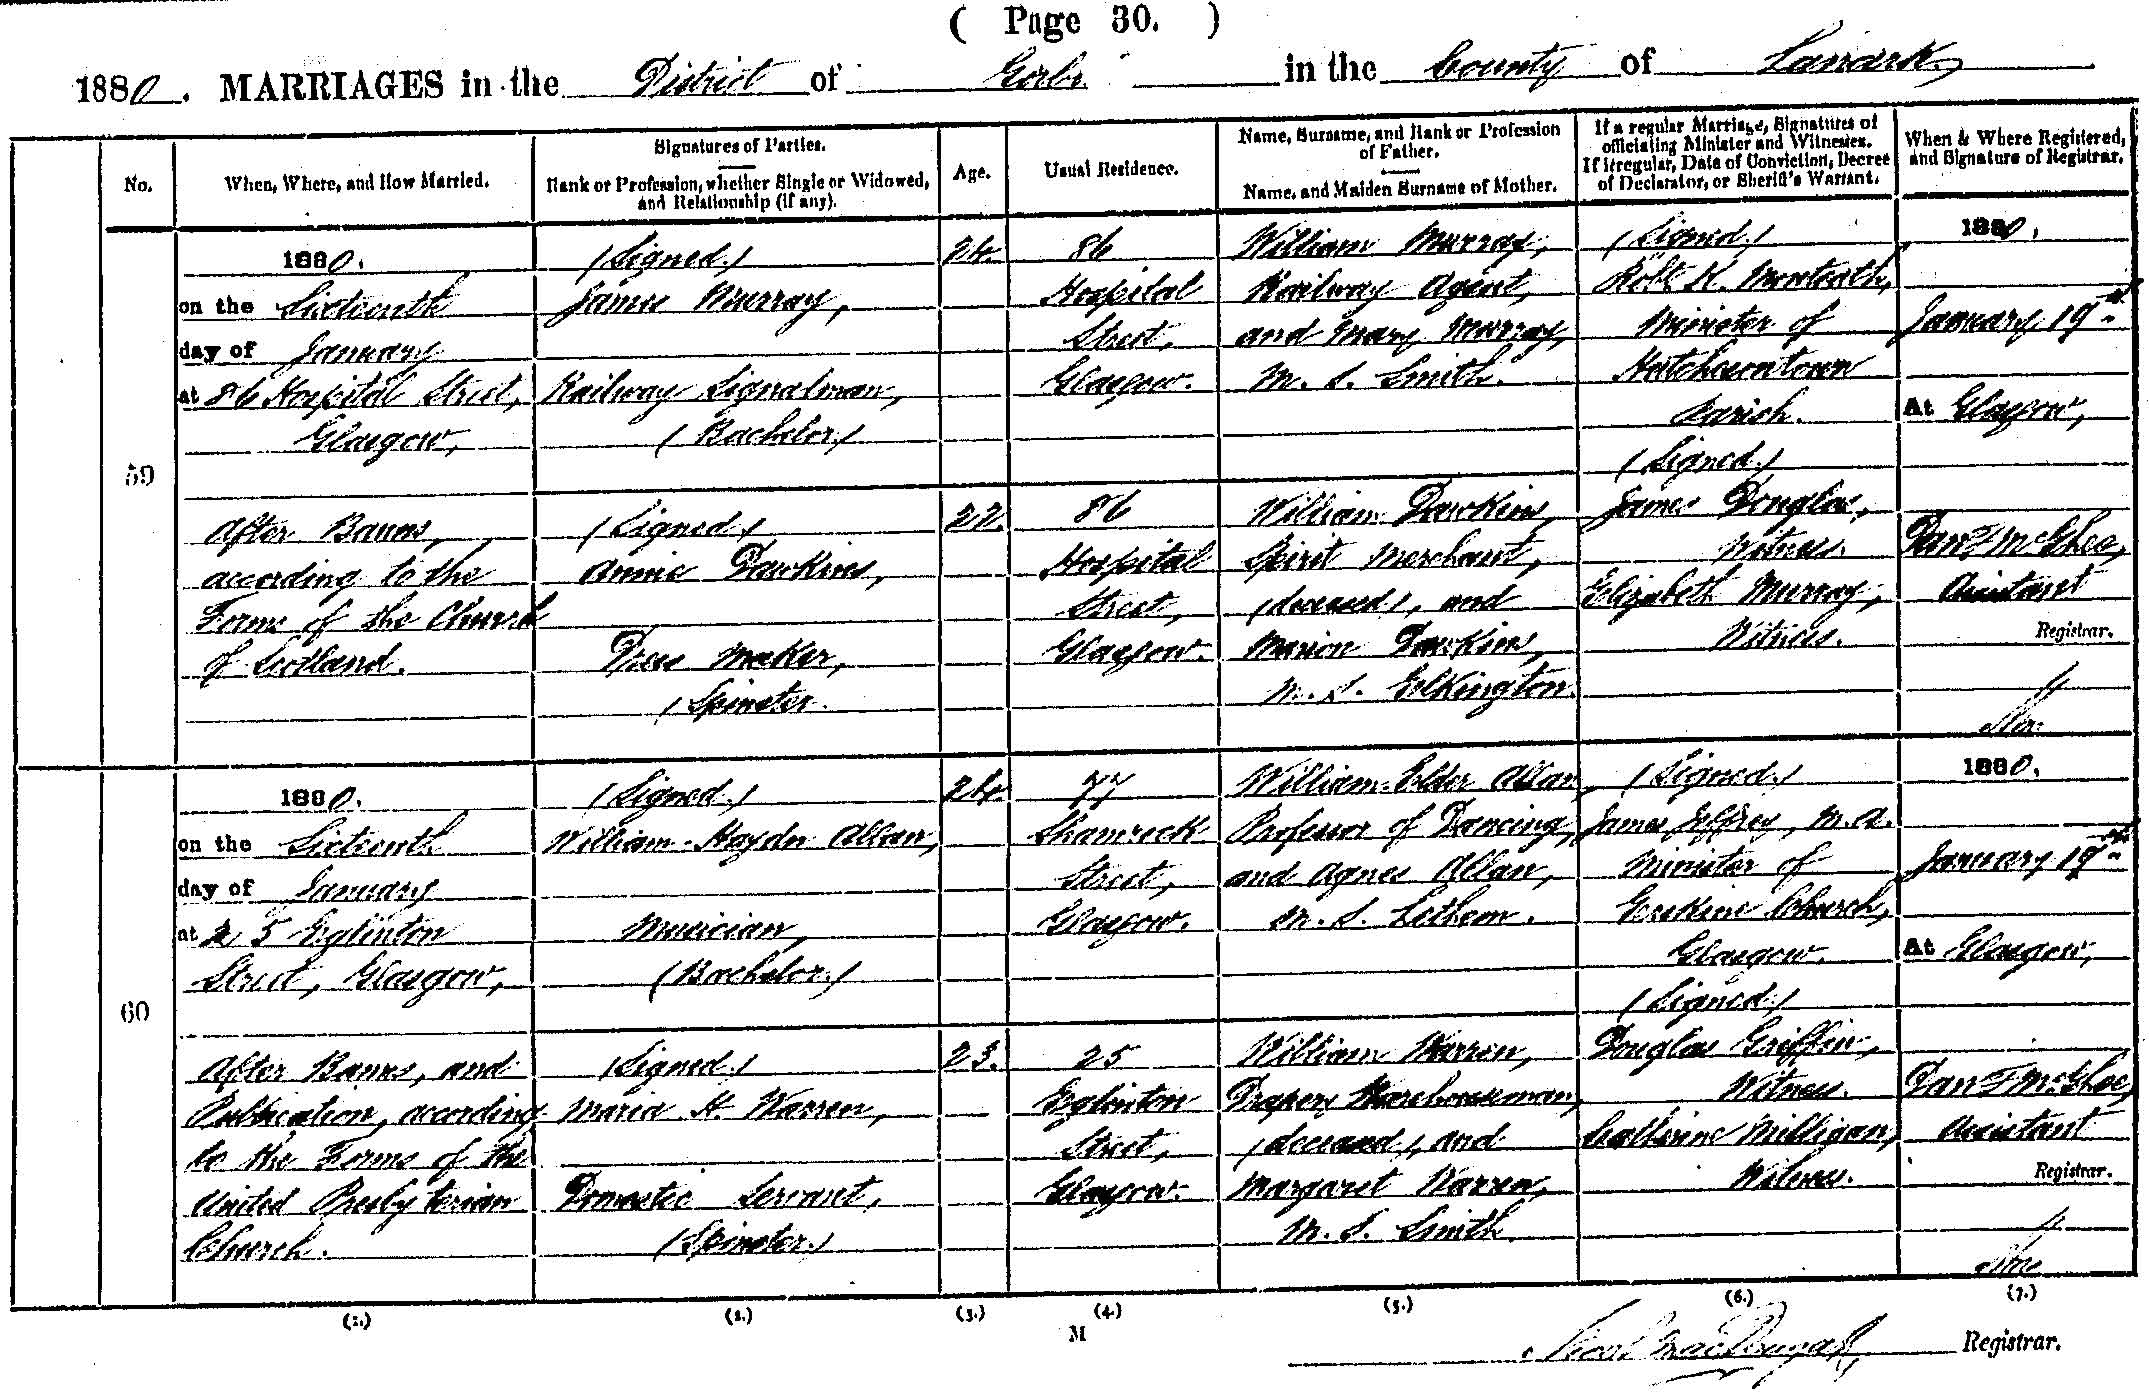 ( Page 30. )
1880. MARRIAGES in the District of Gorbs in the County of Lanark,
No.
When, Where, and How Married.
Signatures of Parties.
Rank or Profession, whether Single or Widowed,
and Relationship (if any).
Age.
Usual Residence.
Name, Surname, and Rank or Profession
of Father.
Name, and Maiden Surname of Mother.
If a regular Marriage, Signatures of
officiating Minister and Witnesses.
If irregular, Date of Conviction, Decree
of Declarator, or Sheriff's Warrant.
When & Where Registered,
and Signature of Registrar.
59
1880.
on the Sixteenth
day of January
at 86 Hospital Street,
Glasgow,
After Banns,
according to the
Forms of the Church
of Scotland.
(Signed)
James Murray,
Railway Signalman,
(Bachelor)
(Signed)
Annie Dawkins,
Dress Maker,
(Spinster
24.
22.
86
Hospital
Street,
Glasgow.
86
Hospital
Street,
Glasgow.
William Murray,
Railway Agent,
and Mary Murray,
M. S. Smith.
William Dawkins,
Spirit Merchant,
(deceased), and
Marion Dawkins,
M. S. Elkington.
(Signed)
Robt. K. Monteath,
Minister of
Hutchesontown
Parish.
(Signed)
James Douglas,
Witness.
Elizabeth Murray,
Witness.
1880.
January 19th
At Glasgow,
Danl McGhee,
Assistant
Registrar.
60
1880.
on the Sixteenth
day of January
at 25 Eglinton
Street, Glasgow,
After Banns, and
Publication, according
to the Forms of the
United Presbyterian
Church.
(Signed)
William Haydn Allan,
Musician,
(Bachelor)
(Signed)
Maria H. Warren,
Domestic Servant,
(Spinster)
24.
23.
77
Shamrock
Street,
Glasgow.
25
Eglinton
Street,
Glasgow.
William Elder Allan,
Professor of Dancing,
and Agnes Allan,
M. S. Lethem.
William Warren,
Drapery Warehouseman,
(deceased), and
Margaret Warren,
M. S. Smith.
(Signed)
James Jeffrey, M.A.
Minister of
Erskine Church,
Glasgow.
(Signed)
Douglas Griffin,
Witness.
Catherine Milligan,
Witness.
1880.
January 19th
At Glasgow,
Danl McGhee,
Assistant
Registrar.
(1.) (2.) (3.) (4.) (5.) (6.) (7.)
M
MacDougall, Registrar.